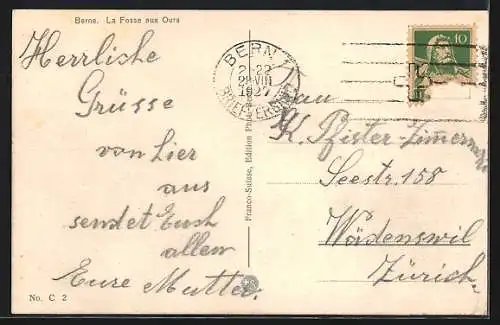 Berne. La Fosse aux Ours
Herrliche
Grüsse
von hier
aus
sendet Euch
allen
Eure Mutter.
No. C 2
Franco-Suisse, Edition
BERN 1
22
22 VIII
1927
BRIEFVERSAND
10
Frau
K. Pfister-Zimmermann
Seestr. 158
Wädenswil
Zürich.